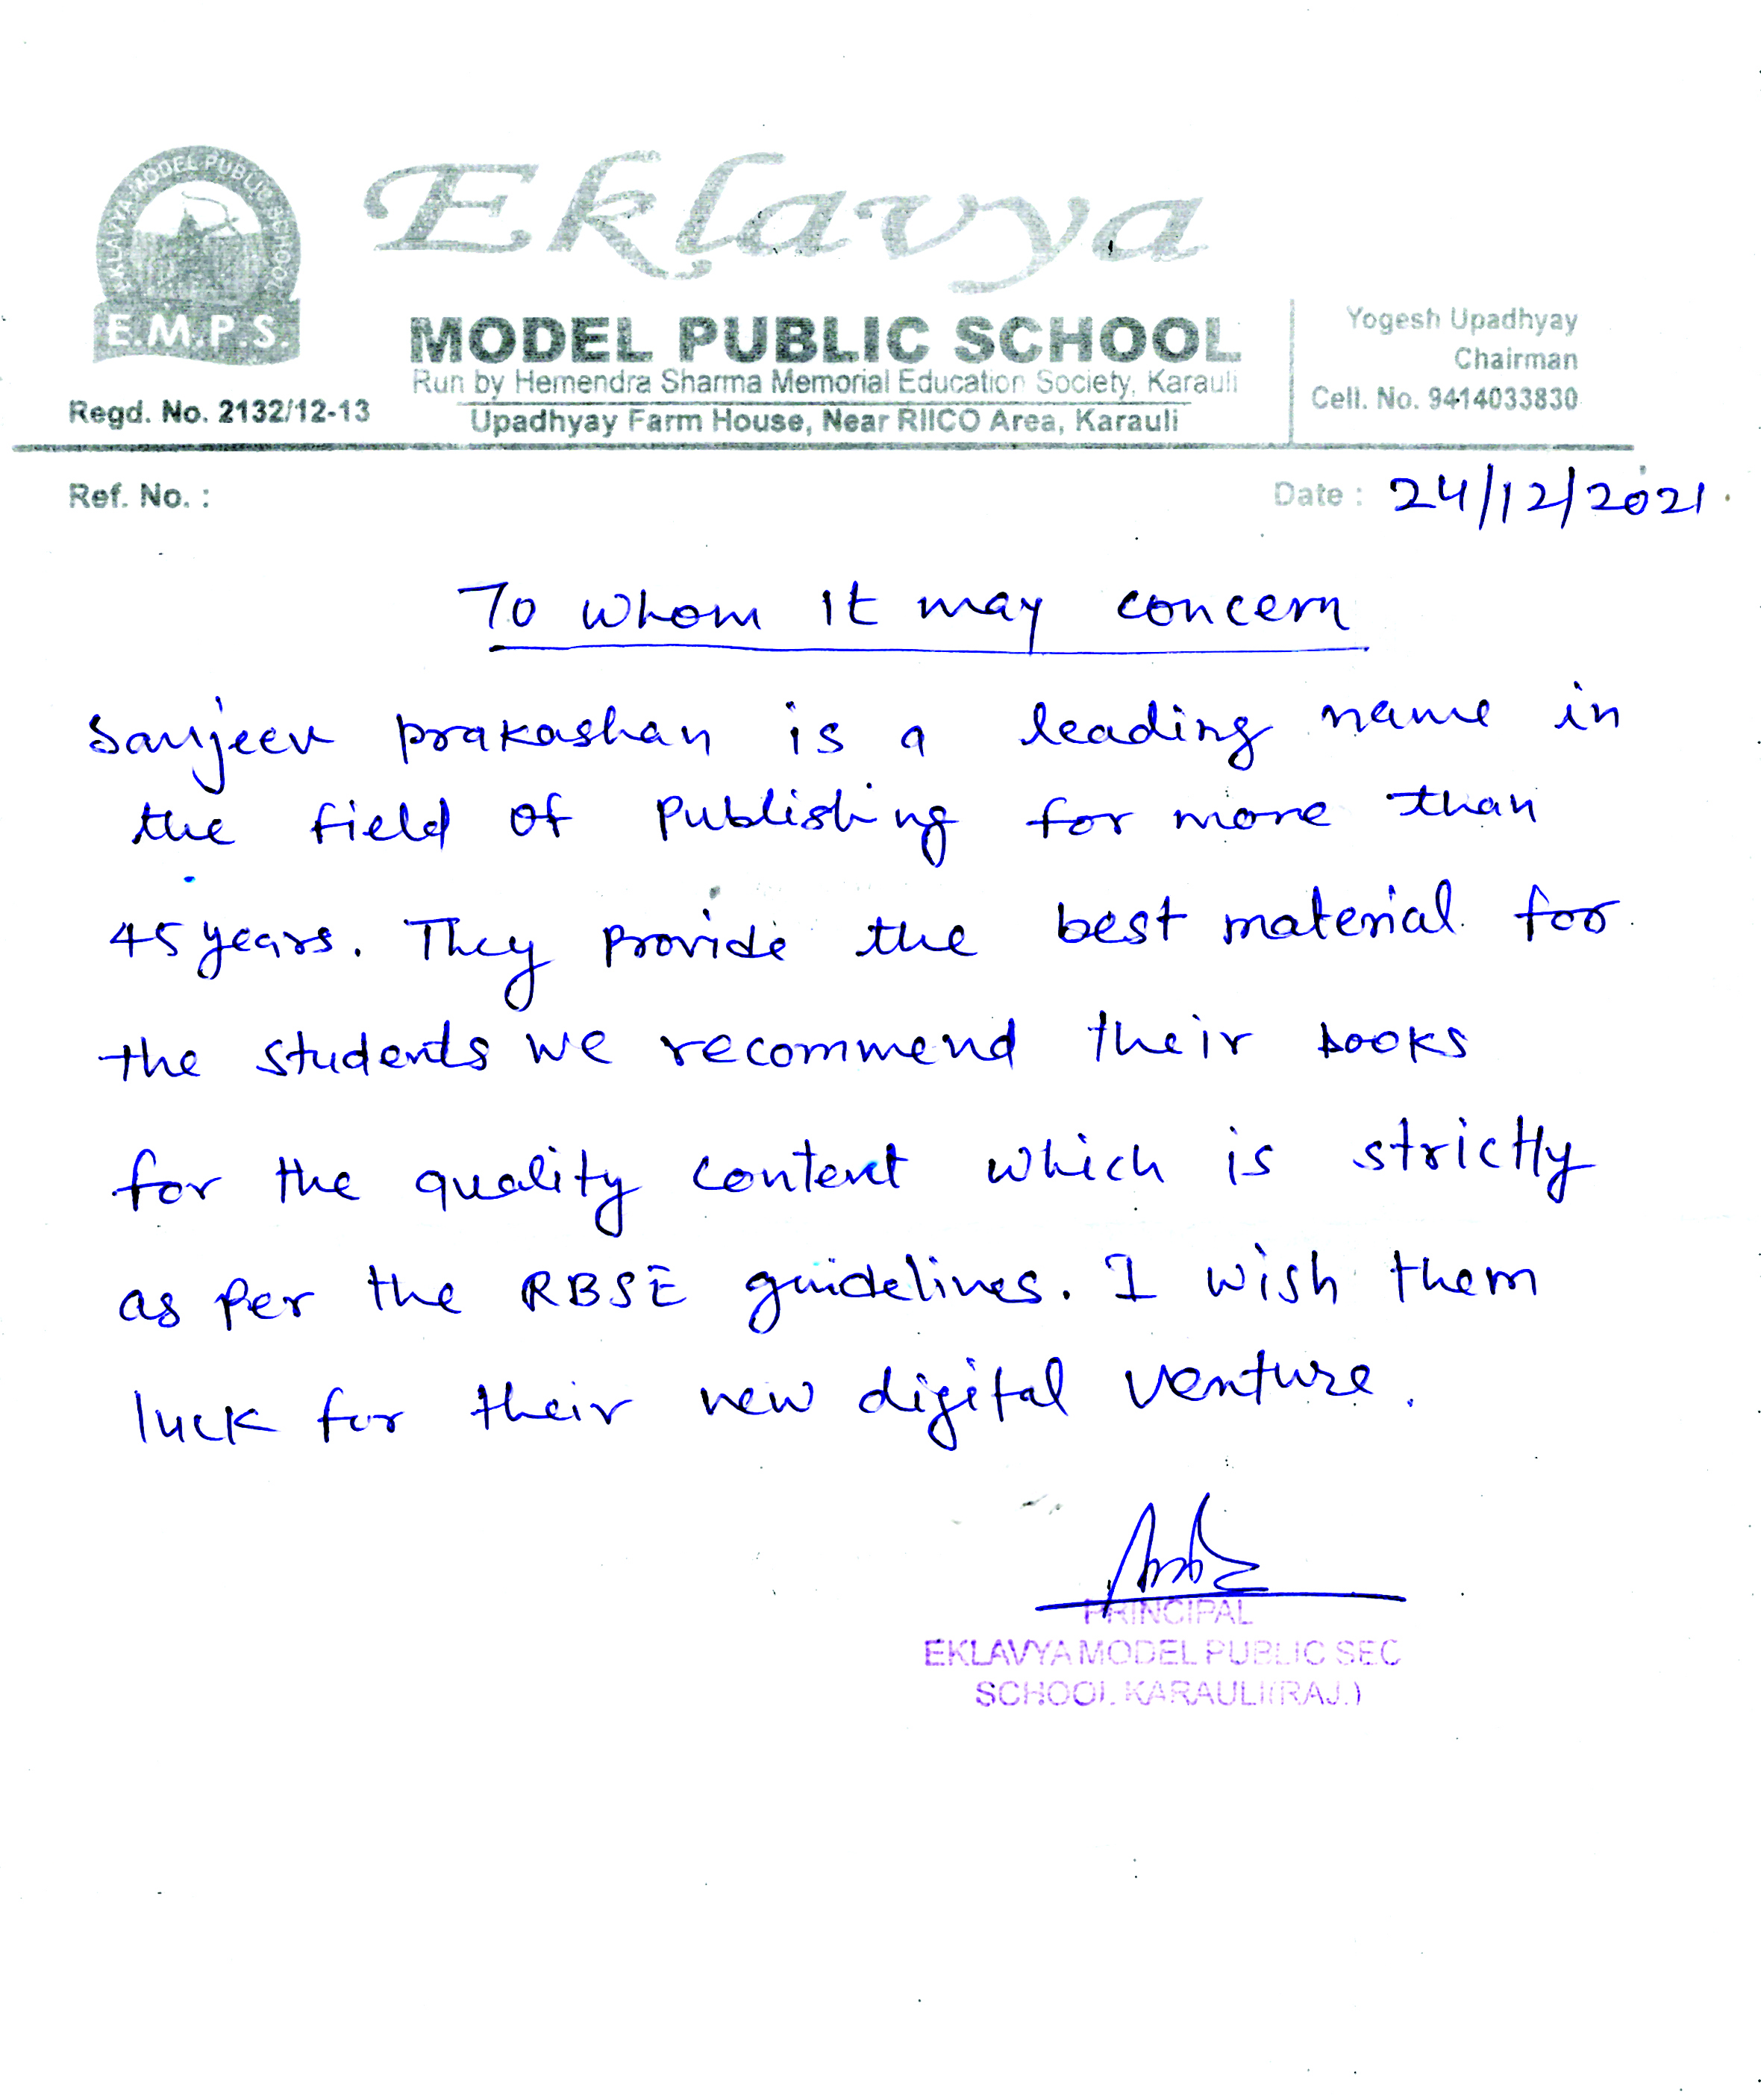 EKLAVYA MODEL PUBLIC SCHOOL
E.M.P.S.
Eklavya
MODEL PUBLIC SCHOOL
Run by Hemendra Sharma Memorial Education Society, Karauli
Upadhyay Farm House, Near RIICO Area, Karauli
Regd. No. 2132/12-13
Yogesh Upadhyay
Chairman
Cell. No. 9414033830
Ref. No. :
Date : 24/12/2021.
To whom it may concern
Sanjeev prakashan is a leading name in
the field of Publishing for more than
45 years. They provide the best material for
the students we recommend their books
for the quality content which is strictly
as per the RBSE guidelines. I wish them
luck for their new digital venture.
PRINCIPAL
EKLAVYA MODEL PUBLIC SEC
SCHOOL KARAULI (RAJ.)